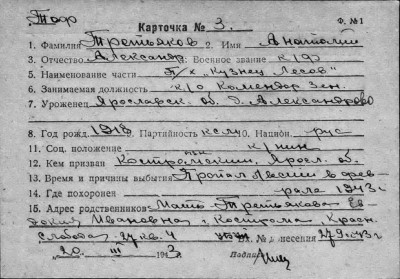 Тоф
Ф. №1
Карточка № 3.
1. Фамилия Третьяков 2. Имя Анатолий
3. Отчество Александр. Военное звание к/ф
5. Наименование части п/х "Кузнец Лесов"
6. Занимаемая должность к/о Комендор Зен.
7. Уроженец Ярославск. об. д. Александрово
8. Год рожд. 1918 Партийность ксмю. Национ. рус
11. Соц. положение к/нин
12. Кем призван Костромским Яросл. об.
13. Время и причины выбытия Пропал без вести в фев-
14. Где похоронен рале 1943 г
15. Адрес родственников Мать Третьякова Ев-
докия Ивановна г. Кострома Красн.
Слобода 27 кв. 4 Вх. № донесения 279с/43г
"20" III 1943 г. Подпись